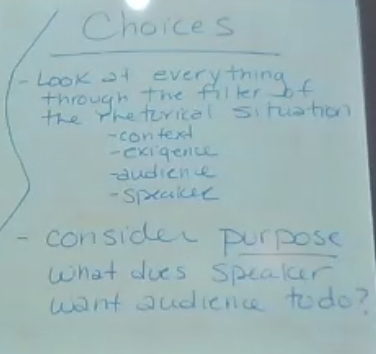 Choices
- Look at everything
through the filter of
the rhetorical situation
-context
-exigence
-audience
-speaker
- consider purpose
what does speaker
want audience to do?